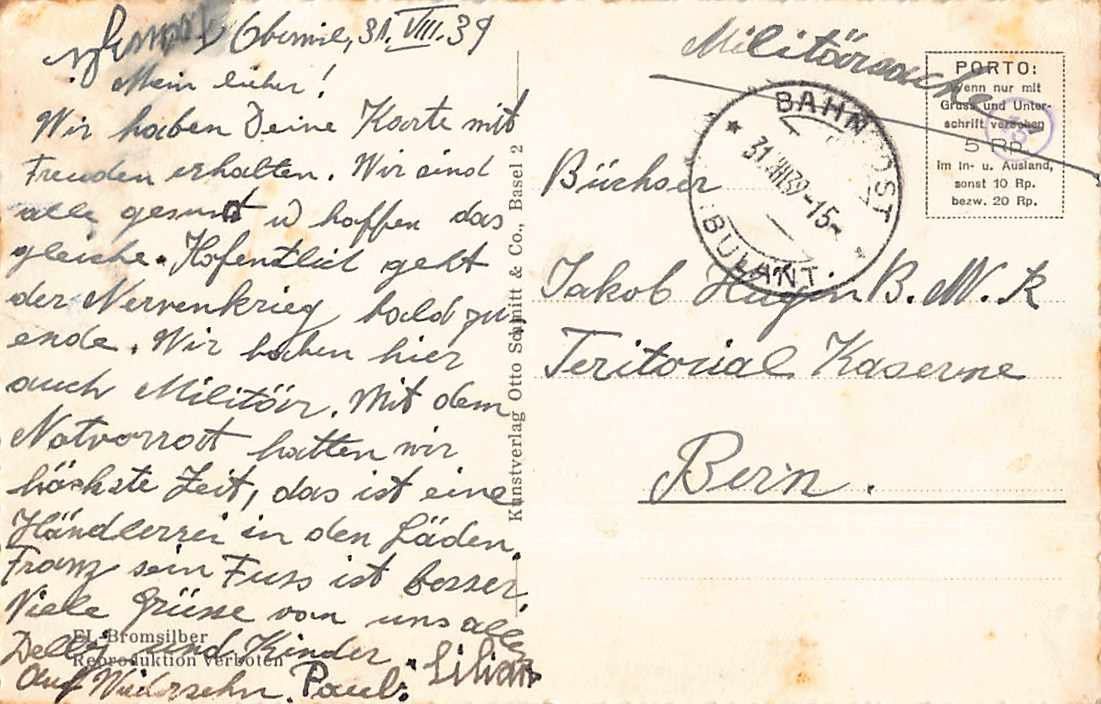 Oberwil, 31. VIII. 39
Mein lieber!
Wir haben Deine Karte mit
Freuden erhalten. Wir sind
alle gesund u hoffen das
gleiche. Hofentlich geht
der Nervenkrieg bald zu
ende. Wir haben hier
auch Militär. Mit dem
Notvorrat hatten wir
höchste Zeit, das ist eine
Händlerrei in den Läden.
Franz sein Fuss ist besser
Viele Grüsse von uns alle
und Kinder.
Auf Wiedersehn. Paul. Lilian
EL-Bromsilber
Reproduktion verboten
Kunstverlag Otto Schmitt & Co., Basel 2
Militärsache
PORTO:
Wenn nur mit
Gruss und Unter-
schrift versehen
5 Rp.
im In- u. Ausland,
sonst 10 Rp.
bezw. 20 Rp.
BAHNPOST
31.VIII.39-15
AMBULANT
Büchser
Jakob Hugin B. W. K
Teritorial Kaserne
Bern.